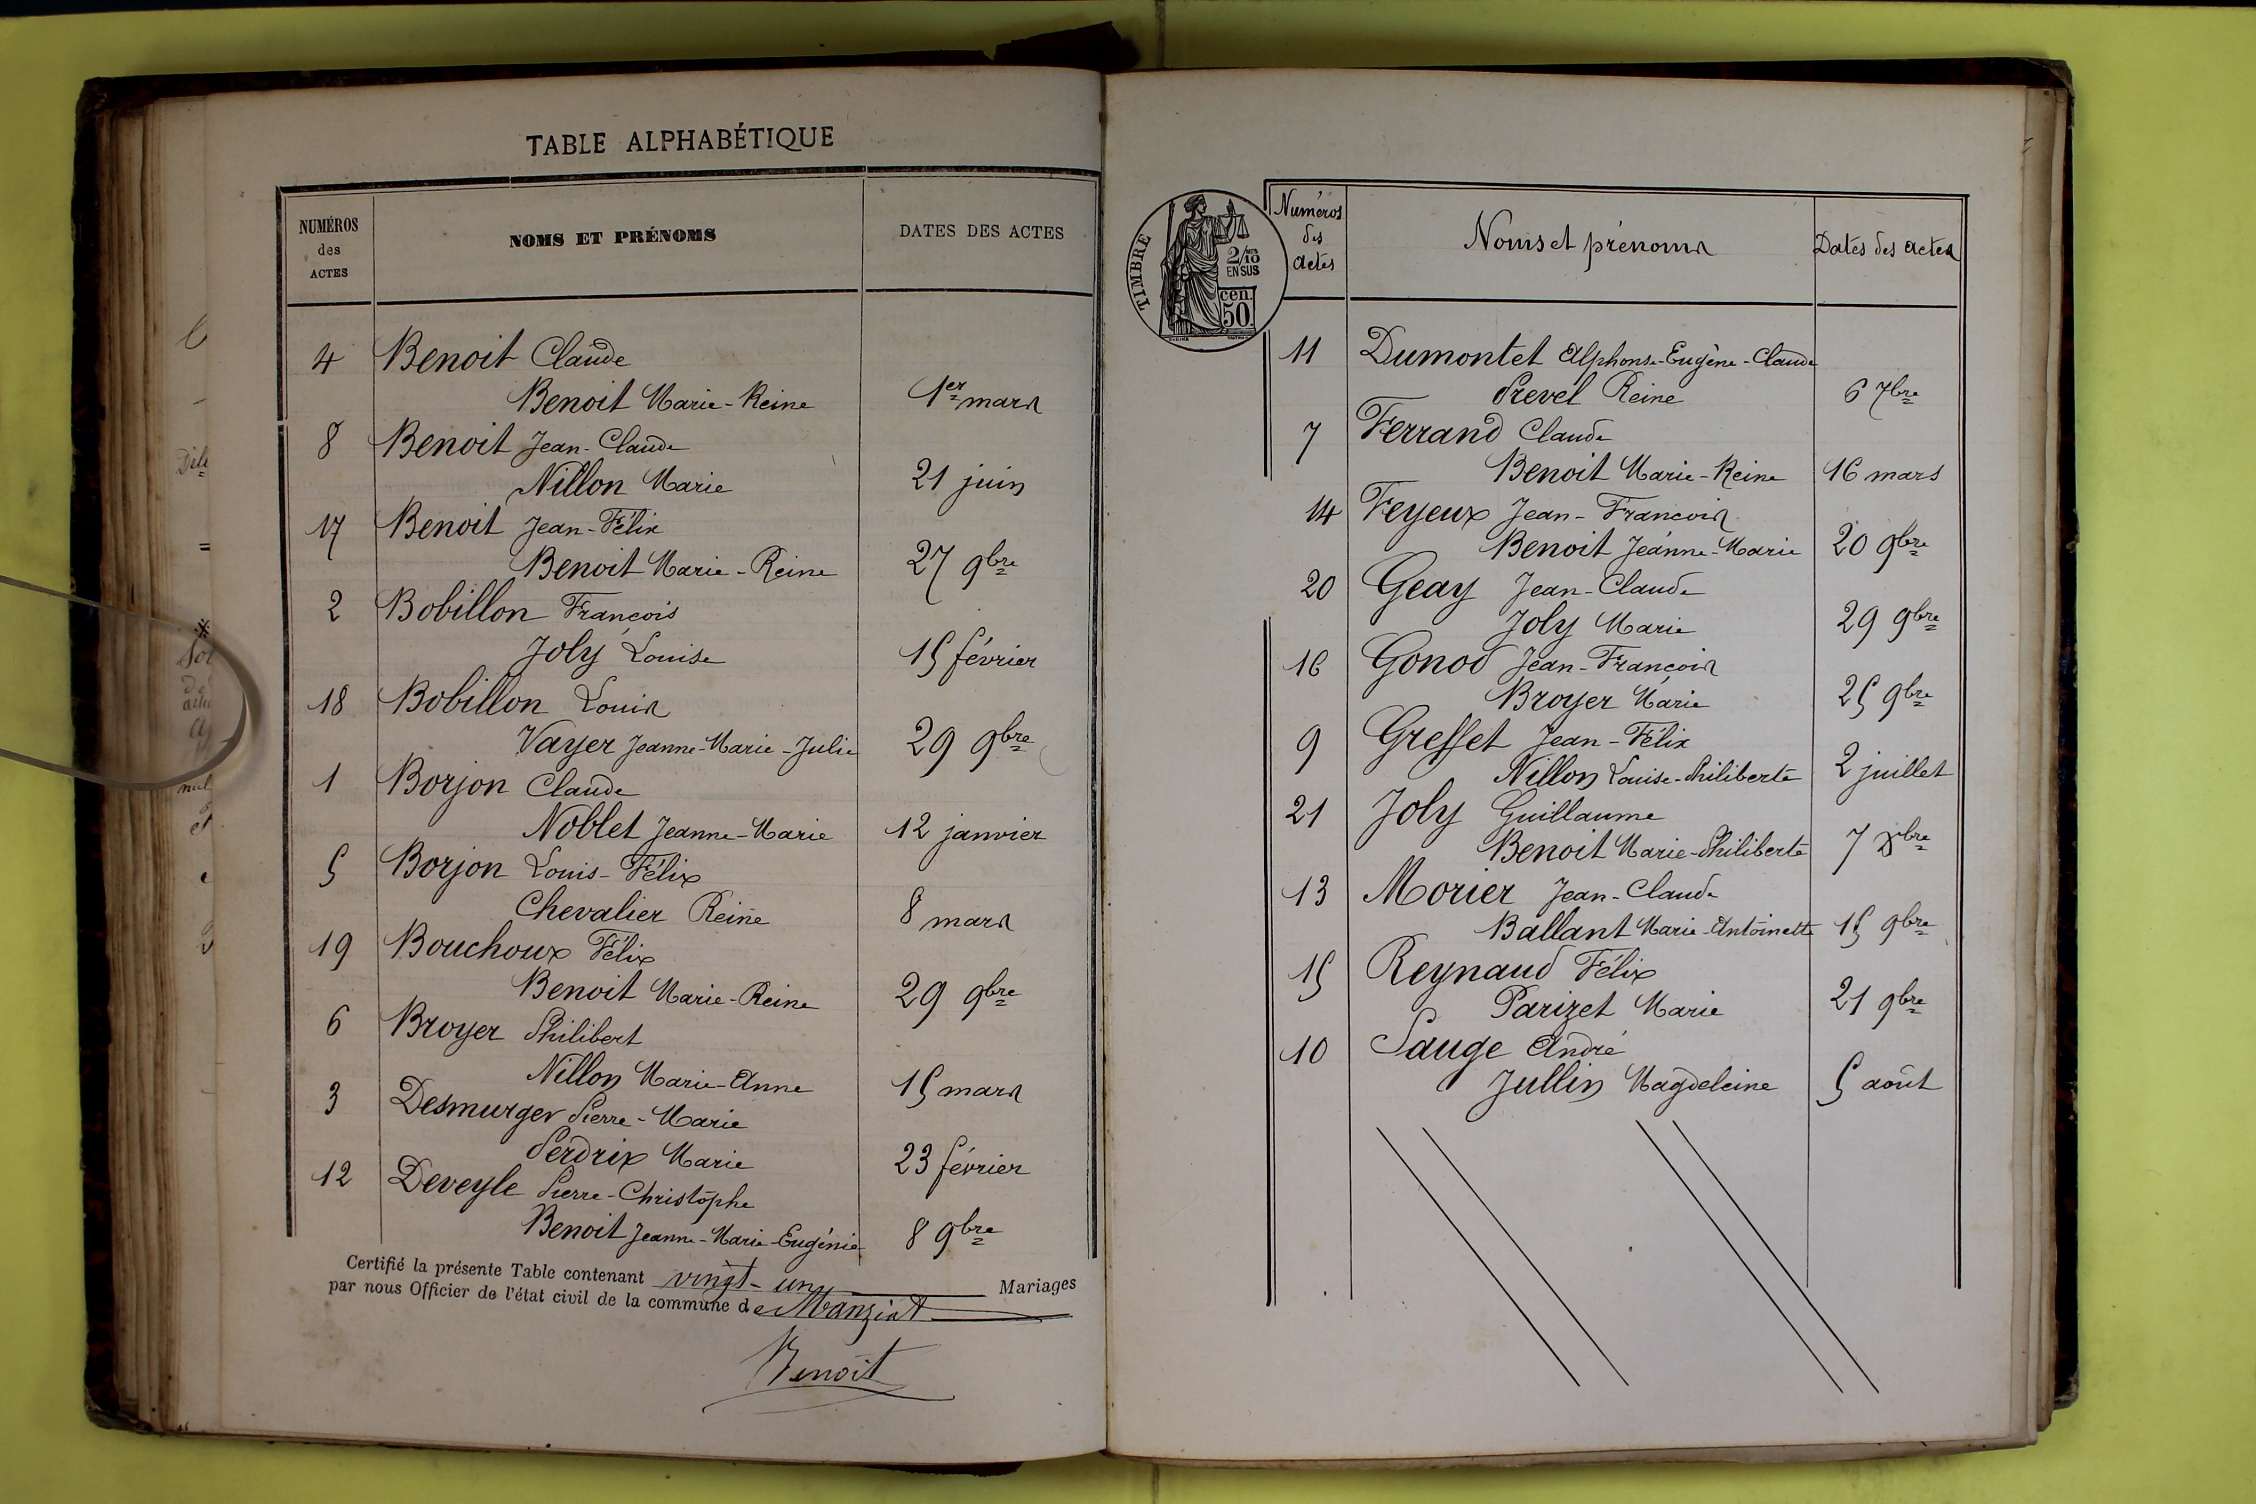 TABLE ALPHABÉTIQUE
NUMÉROS des ACTES
NOMS ET PRÉNOMS
DATES DES ACTES
4 Benoit Claude
Benoit Marie-Reine 1er mars
8 Benoit Jean-Claude
Nillon Marie 21 juin
17 Benoit Jean-Félix
Benoit Marie-Reine 27 9bre
2 Bobillon François
Joly Louise 15 février
18 Bobillon Louis
Vayer Jeanne-Marie-Julie 29 9bre
1 Borjon Claude
Noblet Jeanne-Marie 12 janvier
5 Borjon Louis-Félix
Chevalier Reine 8 mars
19 Bouchoux Félix
Benoit Marie-Reine 29 9bre
6 Broyer Philibert
Nillon Marie-Anne 15 mars
3 Desmurger Pierre-Marie
Perdrix Marie 23 février
12 Deveyle Pierre-Christophe
Benoit Jeanne-Marie-Eugénie 8 9bre
Certifié la présente Table contenant vingt-un Mariages
par nous Officier de l'état civil de la commune de Manziat
Benoit
TIMBRE
2/10
EN SUS
cen.
50
Numéros des actes
Noms et prénoms
Dates des actes
11 Dumontet Alphonse-Eugène-Claude
Prevel Reine 6 7bre
7 Ferrand Claude
Benoit Marie-Reine 16 mars
14 Feyeux Jean-François
Benoit Jeanne-Marie 20 9bre
20 Geay Jean-Claude
Joly Marie 29 9bre
16 Gonod Jean-François
Broyer Marie 25 9bre
9 Greffet Jean-Félix
Nillon Louise-Philiberte 2 juillet
21 Joly Guillaume
Benoit Marie-Philiberte 7 Xbre
13 Morier Jean-Claude
Ballant Marie-Antoinette 15 9bre
15 Reynaud Félix
Parizet Marie 21 9bre
10 Sauge André
Jullin Magdeleine 5 août